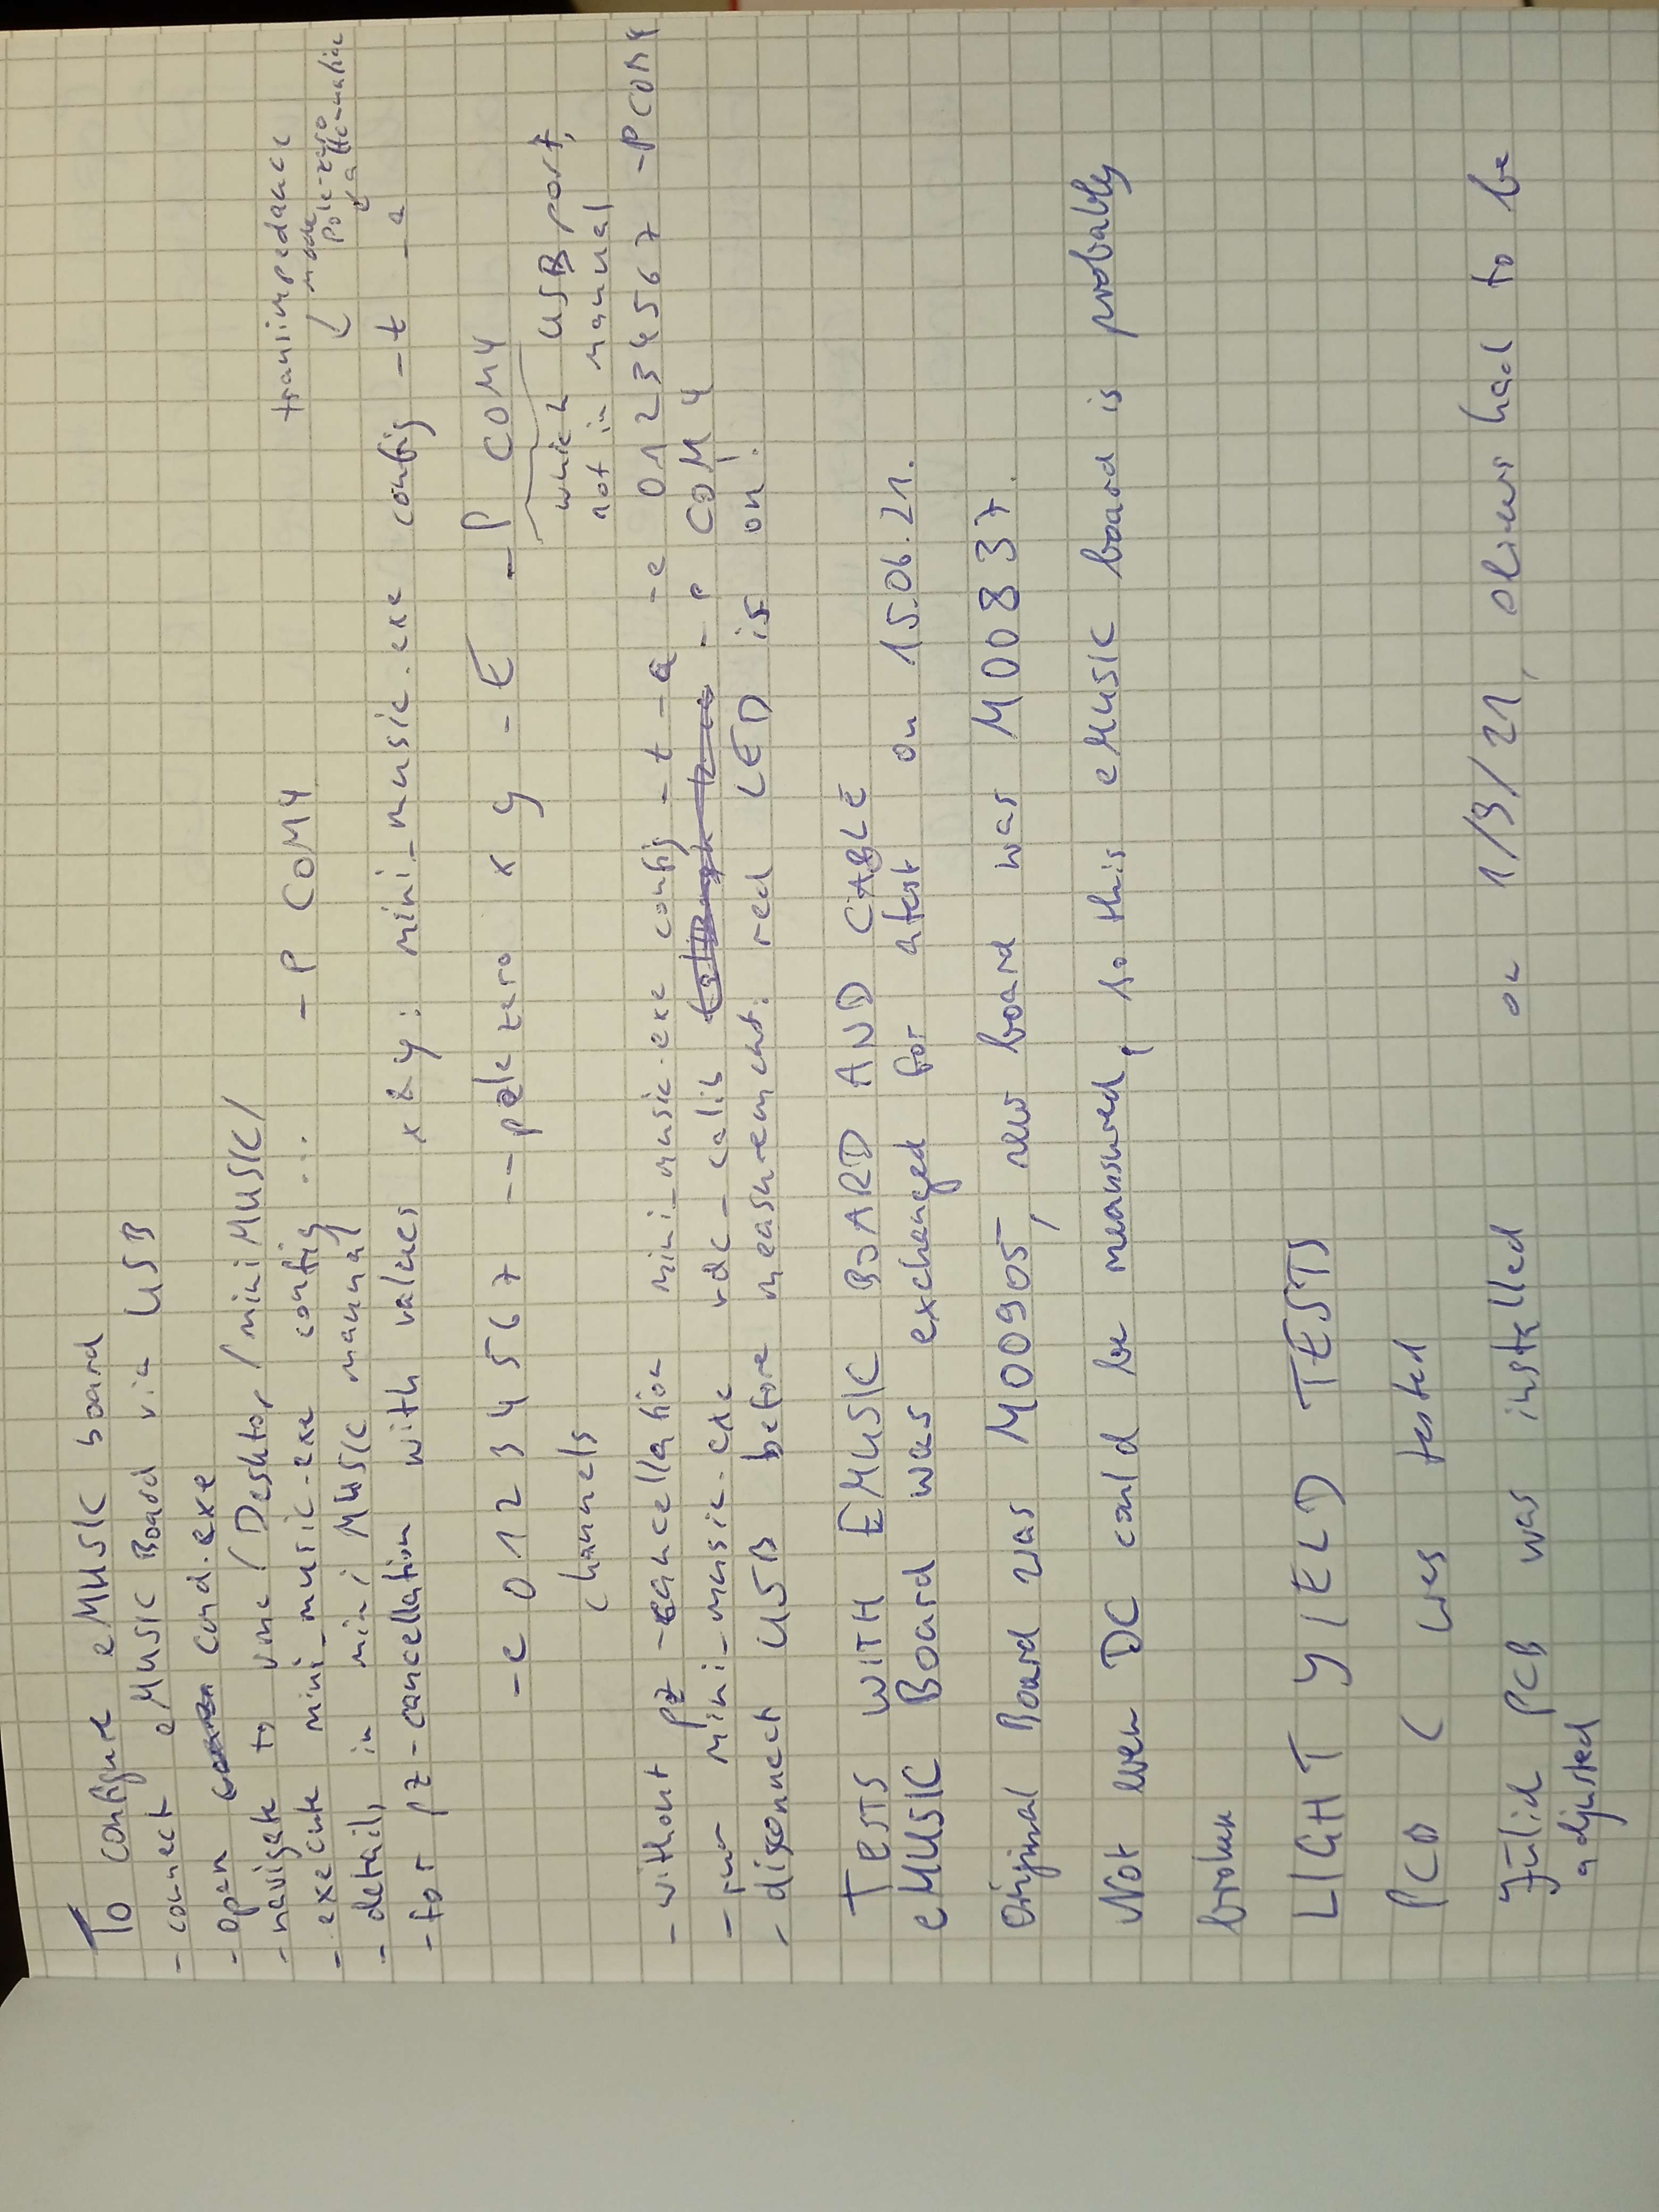 To configure eMUSIC board
- connect eMUSIC Board via USB
- open cmd.exe
- navigate to vmc / Desktop / mini MUSIC /
- execute mini_music.exe config ... -P COM4
- details in mini MUSIC manual
transimpedance
mode
Pole-zero
- for pz-cancellation with values x & y: mini_music.exe config -t -a
-c 0 1 2 3 4 5 6 7 --polezero x y -E -P COM4
channels
which USB port,
not in manual
- without pz-cancellation mini_music.exe config -t -a -c 01234567 -P COM4
- run mini_music.exe adc_calib -P COM4
- disconnect USB before measurement: red LED is on.
TESTS WITH EMUSIC BOARD AND CABLE
eMUSIC Board was exchanged for a test on 15.06.21.
Original Board was M00905, new board was M00837.
Not even DC could be measured, so this eMUSIC board is probably
broken
LIGHT YIELD TESTS
PCB C was tested
Jülich PCB was installed on 1/9/21, drivers had to be
adjusted